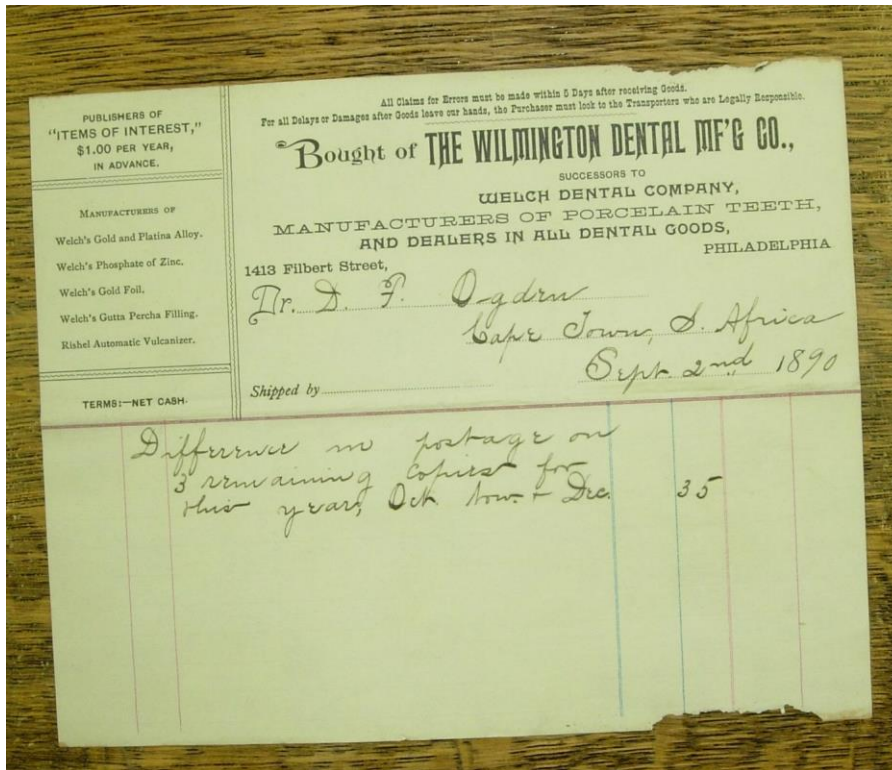 PUBLISHERS OF
"ITEMS OF INTEREST,"
$1.00 PER YEAR,
IN ADVANCE.
MANUFACTURERS OF
Welch's Gold and Platina Alloy.
Welch's Phosphate of Zinc.
Welch's Gold Foil.
Welch's Gutta Percha Filling.
Rishel Automatic Vulcanizer.
TERMS:—NET CASH.
All Claims for Errors must be made within 5 Days after receiving Goods.
For all Delays or Damages after Goods leave our hands, the Purchaser must look to the Transporters who are Legally Responsible.
Bought of THE WILMINGTON DENTAL MF'G CO.,
SUCCESSORS TO
WELCH DENTAL COMPANY,
MANUFACTURERS OF PORCELAIN TEETH,
AND DEALERS IN ALL DENTAL GOODS,
PHILADELPHIA
1413 Filbert Street,
Dr. D. F. Ogden
Cape Town, S. Africa
Sept. 2nd 1890
Shipped by
Difference in postage on
3 remaining copies for
this year, Oct. Nov. + Dec. 35